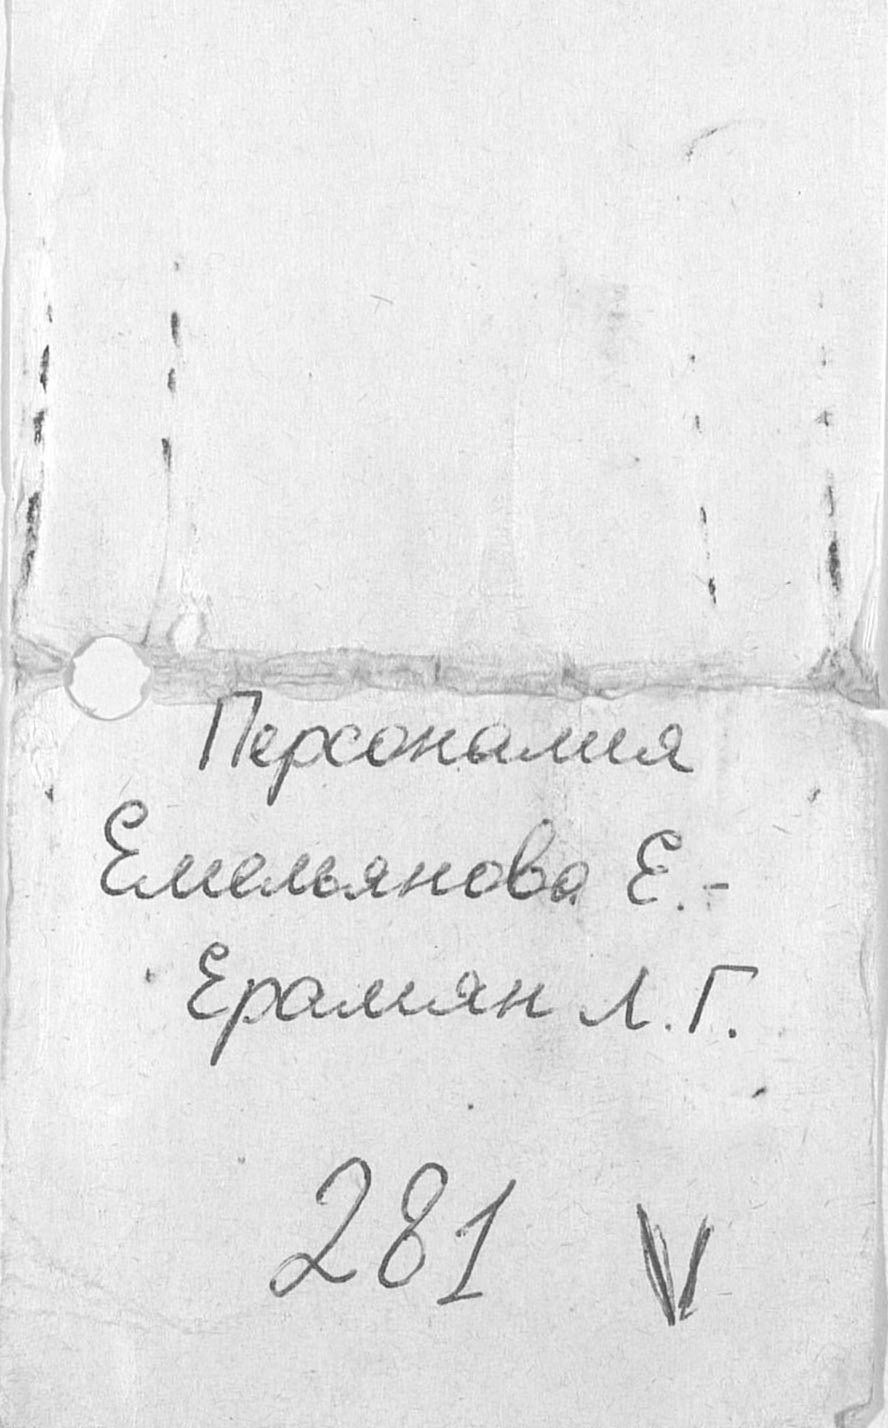 Персоналия
Емельянова Е.-
Ерамян Л.Г.
281 V